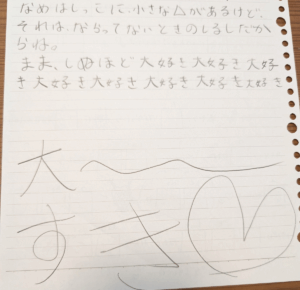 なめはしっこに、小さな△があるけど、
それは、ならってないときのしるしだか
らね。
まま、しぬほど大好き大好き大好
き大好き大好き大好き大好き大好き
大〜〜
すき♡